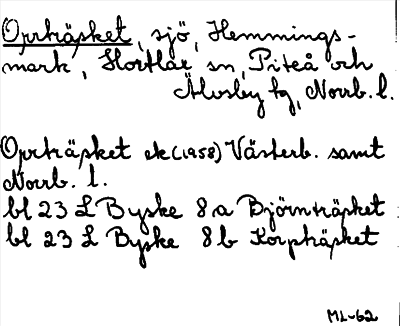 Oprträsket, sjö, Hemmings-
mark, Hortlax sn, Piteå och
Älvsby tg, Norrb. l.
Oprträsket ek (1958) Västerb. samt
Norrb. l.
bl 23 L Byske 8 a Björnträsket
bl 23 L Byske 8 b Korpträsket
ML-62